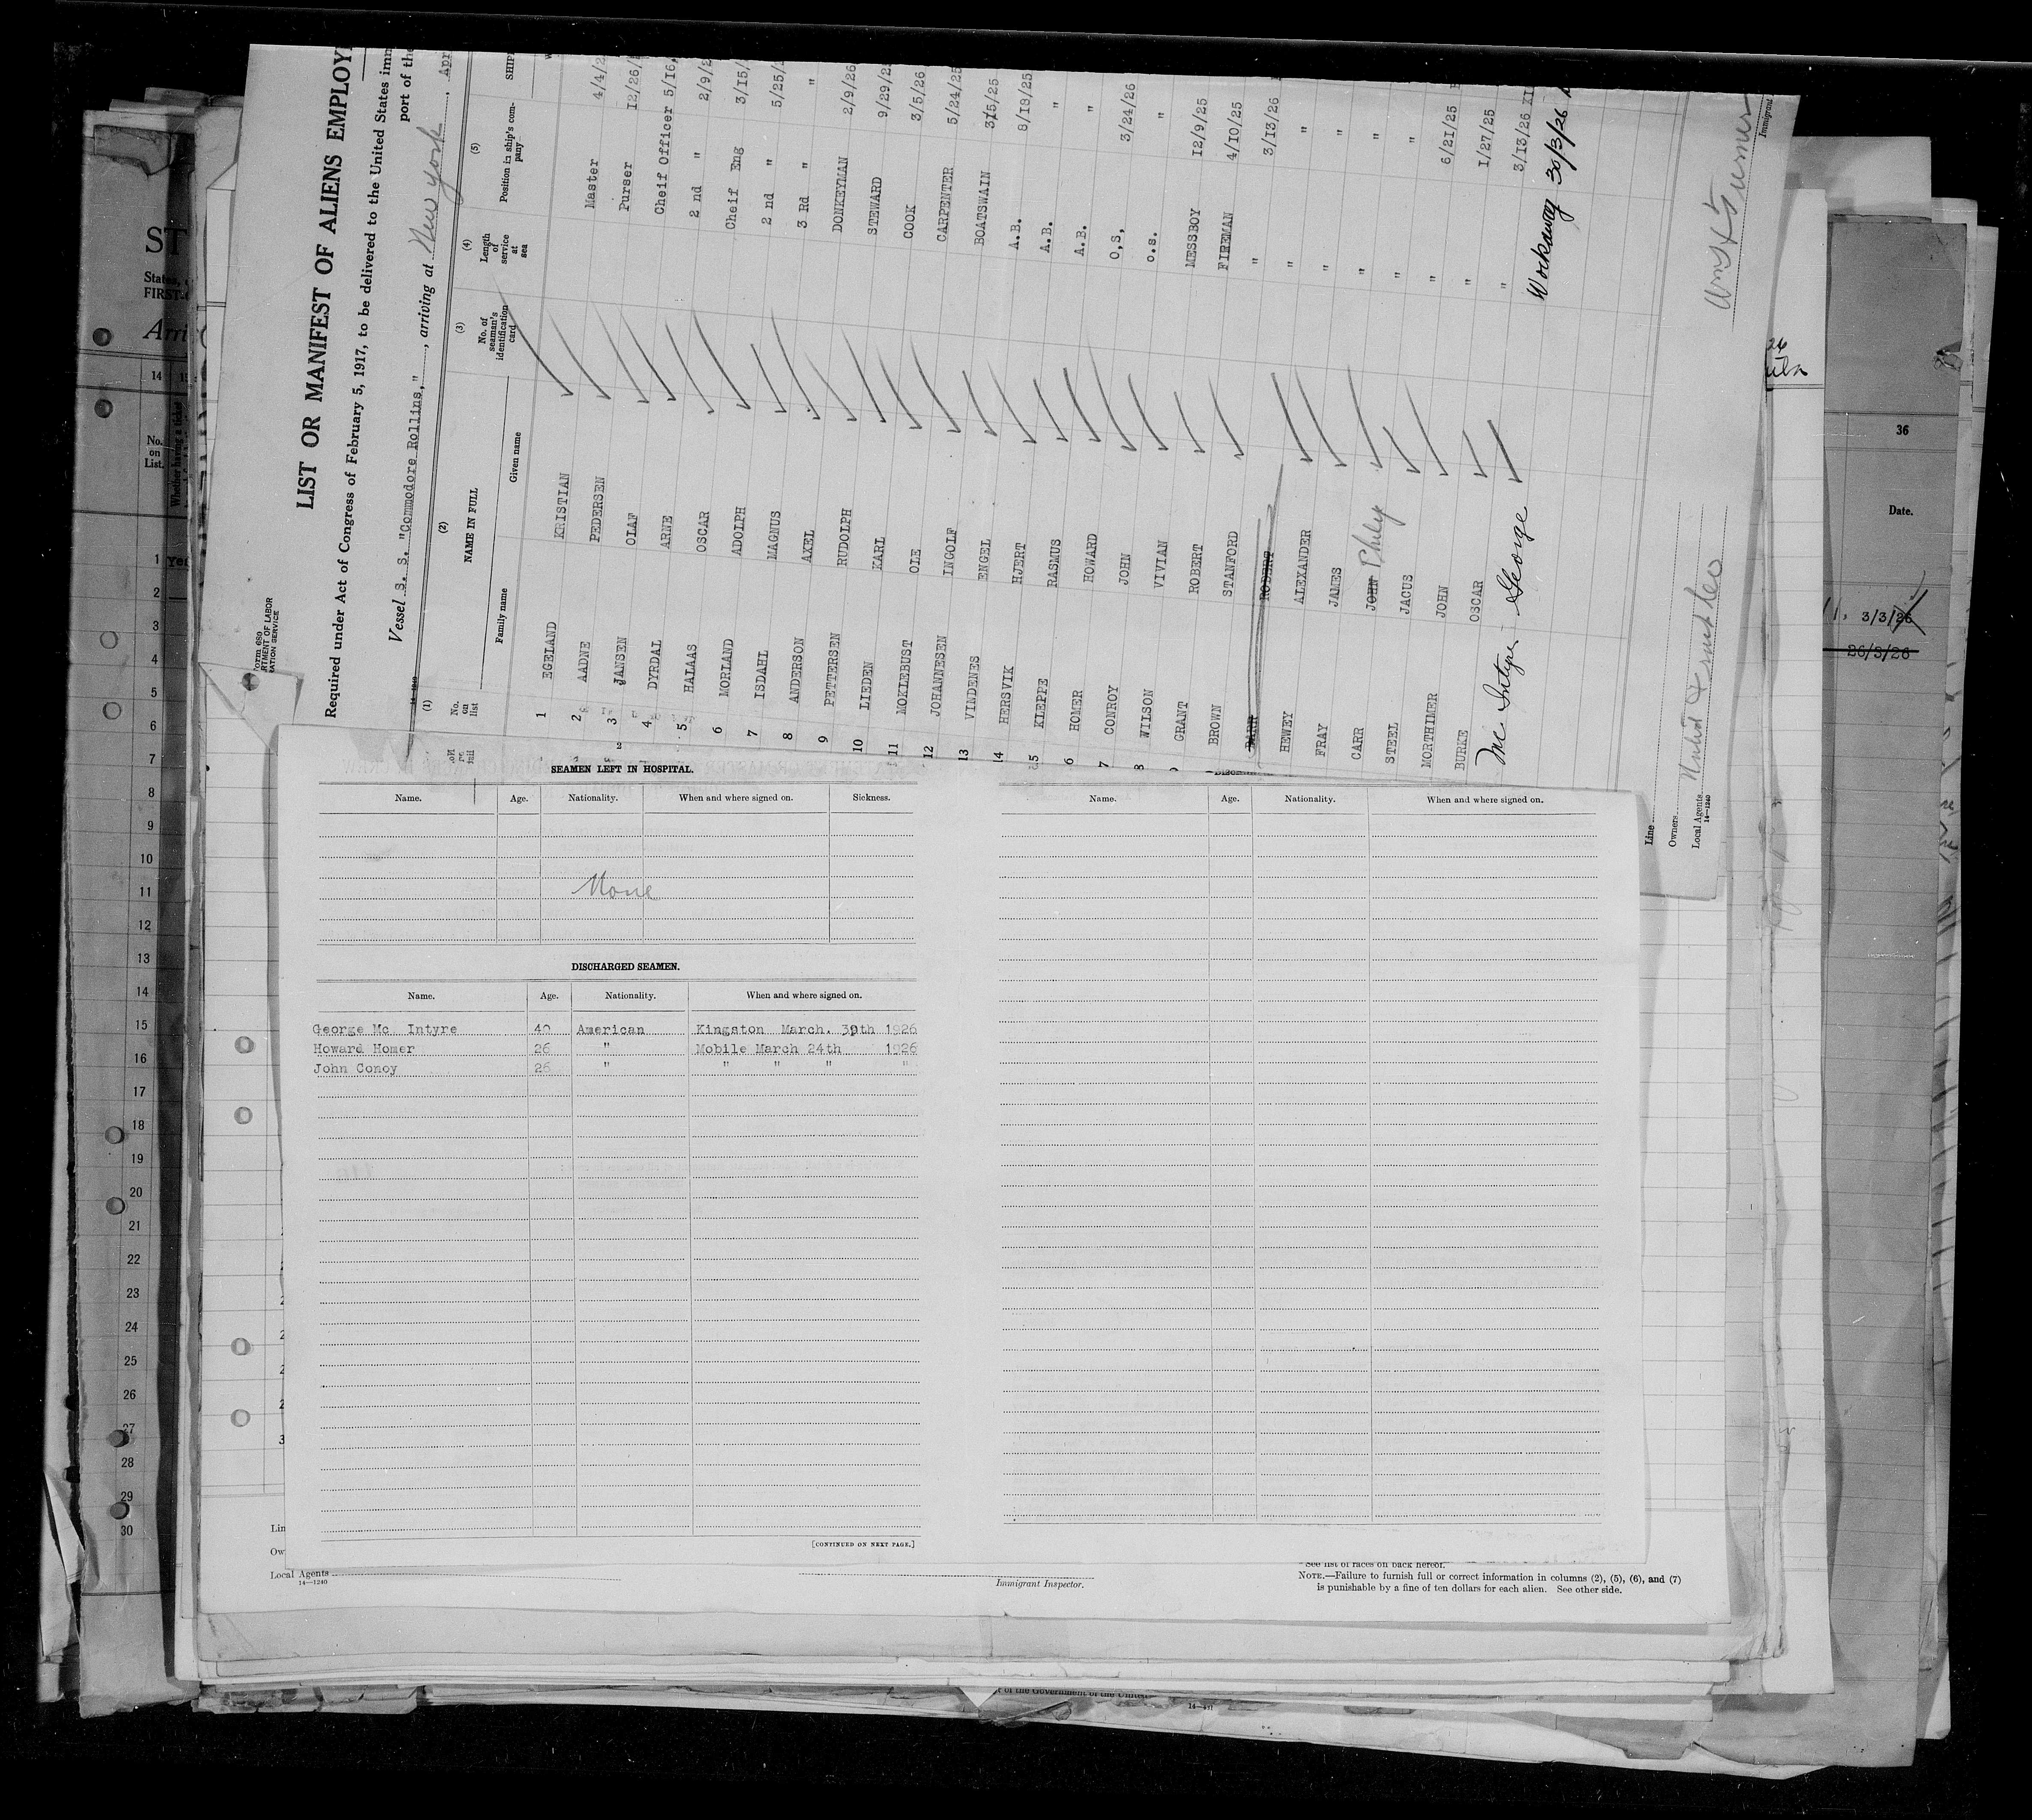 LIST OR MANIFEST OF ALIENS EMPLOY
Required under Act of Congress of February 5, 1917, to be delivered to the United States imm
port of the
Vessel S. S. "Commodore Rollins,", arriving at New York, Apr
(1) (2) (3) (4) (5)
No. on list
NAME IN FULL
Family name Given name
No. of seaman's identification card
Length of service at sea
Position in ship's company
SHIP
1 EGELAND KRISTIAN Master 4/4/2
2 AADNE PEDERSEN Purser 12/26/
3 JANSEN OLAF Cheif Officer 5/16,
4 DYRDAL ARNE 2 nd " 2/9/2
5 HALAAS OSCAR Cheif Eng 3/15/
6 MORLAND ADOLPH 2 nd " 5/25/
7 ISDAHL MAGNUS 3 Rd " "
8 ANDERSON AXEL DONKEYMAN 2/9/26
9 PETTERSEN RUDOLPH STEWARD 9/29/2
10 LIEDEN KARL COOK 3/5/26
11 MOKLEBUST OLE CARPENTER 5/24/25
12 JOHANNESEN INGOLF BOATSWAIN 3/5/25
13 VINDENES ENGEL A.B. 8/18/25
14 HERSVIK HJERT A.B. "
5 KLEPPE RASMUS A.B. "
6 HOMER HOWARD O,S, 3/24/26
7 CONROY JOHN o.s. "
8 WILSON VIVIAN MESSBOY 12/9/25
GRANT ROBERT FIREMAN 4/10/25
BROWN STANFORD " 3/13/26
BARR ROBERT " "
HEWEY ALEXANDER " "
FRAY JAMES " "
CARR JOHN Phily " "
STEEL JACUS " 6/21/25
MORTHIMER JOHN " 1/27/25
BURKE OSCAR " 3/13/26
Mc Intyre George Workaway 30/3/26
Line
Owners
Local Agents
14—1240
Immigrant
SEAMEN LEFT IN HOSPITAL.
Name. Age. Nationality. When and where signed on. Sickness.
None
DISCHARGED SEAMEN.
Name. Age. Nationality. When and where signed on.
George Mc Intyre 40 American Kingston March. 30th 1926
Howard Homer 26 " Mobile March 24th 1926
John Conoy 26 " " " " "
[CONTINUED ON NEXT PAGE.]
Name. Age. Nationality. When and where signed on.
Local Agents
14—1240
Immigrant Inspector.
See list of races on back hereof.
NOTE.—Failure to furnish full or correct information in columns (2), (5), (6), and (7)
is punishable by a fine of ten dollars for each alien. See other side.
of the Government of the United
ST
States,
FIRST-
Arri
14
No. on List.
Whether having a ticket
1 Yes
2
3
4
5
6
7
8
9
10
11
12
13
14
15
16
17
18
19
20
21
22
23
24
25
26
27
28
29
30
36
Date.
3/3/26
26/3/26